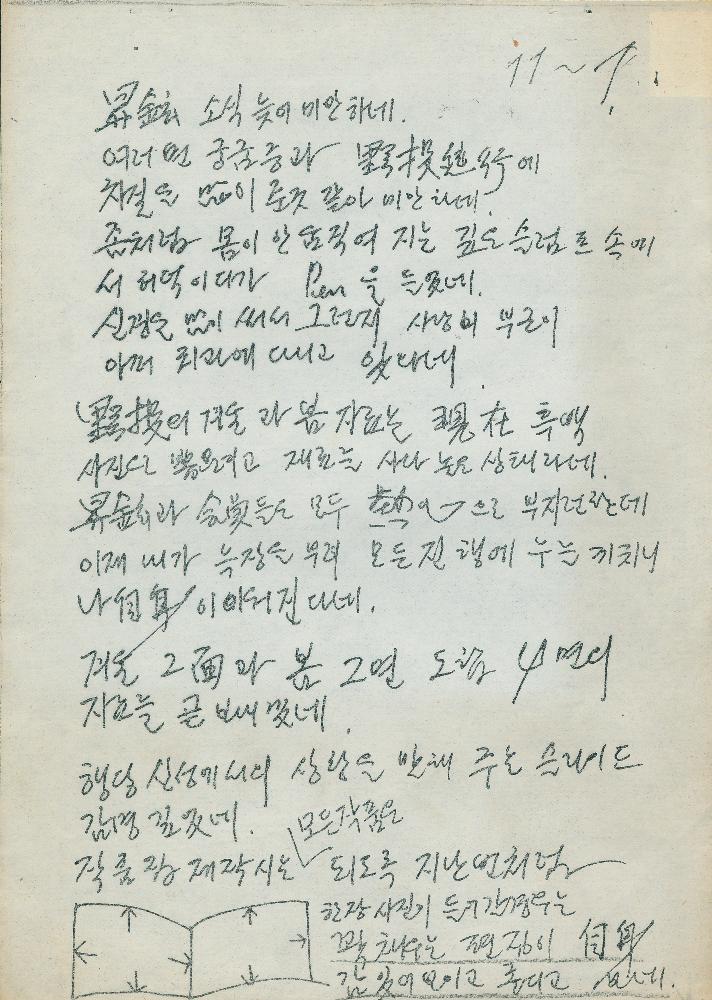 11~1
昇鉉 소식 늦어 미안하네.
여러번 궁금증과 野投 進行에
차질을 많이 준것 같아 미안하네.
좀처럼 몸이 안 움직여 지는 깊은 슬럼프 속에
서 허덕이다가 Pen을 들었네.
신경을 많이 써서 그런지 사랑이 부근이
아퍼 치과에 다니고 있다네.
野投의 겨울과 봄 자료는 現在 흑백
사진으로 뽑으려고 재료를 사다 놓은 상태라네.
昇鉉과 会員들은 모두 熱心으로 부지런한데
이제 내가 늑장을 부려 모든 진행에 누를 끼치니
나 自身이 미워진다네.
겨울 2面과 봄 2면 도합 4면의
자료를 곧 보내겠네.
행당 신성기씨의 상황을 말해 주는 슬라이드
감명 깊었네.
모든작품은
작품랑 제작시는 되도록 지난번처럼
한장 사진이 들어갈경우는
꽉 채우는 편집이 自身
감 있어 보이고 좋다고 보네.